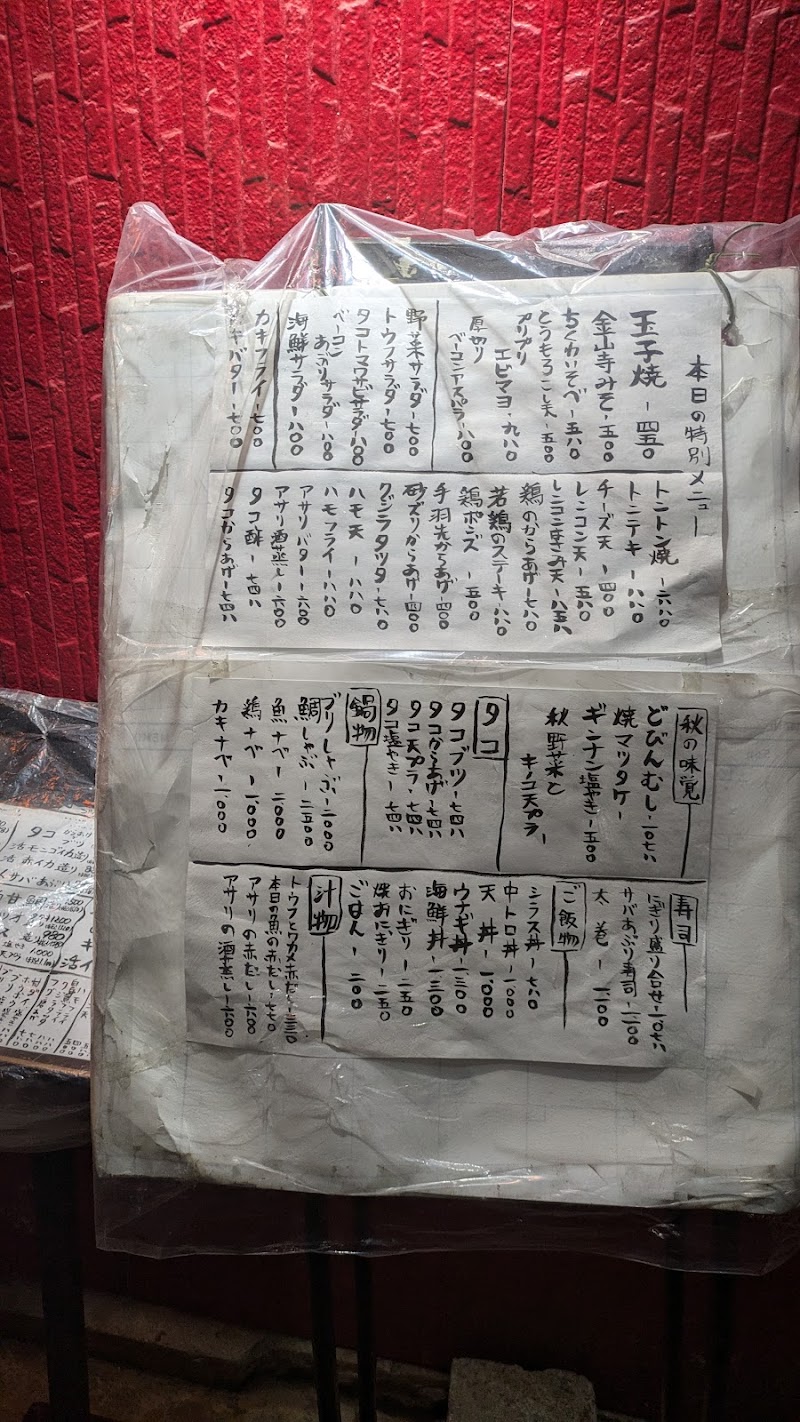 本日の特別メニュー
玉子焼 ー 四五〇
金山寺みそー五〇〇
ちくわいそべー五八〇
とうもろこし天ー五〇〇
プリプリ
エビマヨー九八〇
厚切り
ベーコンアスパラー八〇〇
野菜サラダー七〇〇
トウフサラダー七〇〇
タコトマワサビサラダー八〇〇
ベーコン
あぶりサラダー八〇〇
海鮮サラダー八〇〇
カキフライー七〇〇
カキバターー七〇〇
トントン焼ー六八〇
トンテキー八八〇
チーズ天ー四〇〇
レンコン天ー五八〇
レンコンはさみ天ー八五八
鶏のからあげー七八〇
若鶏のステーキー八八〇
鶏ポンズー五〇〇
手羽先からあげー四〇〇
砂ズリからあげー四〇〇
クジラタツター七八〇
ハモ天ー八八〇
ハモフライー八八〇
アサリバターー六〇〇
アサリ酒蒸しー六〇〇
タコ酢ー七四八
タコからあげー七四八
秋の味覚
どびんむしー一〇七八
焼マツタケー
ギンナン塩やきー五〇〇
秋野菜と
キノコ天プラー
タコ
タコブツー七四八
タコからあげー七四八
タコ天プラー七四八
タコ塩やきー七四八
鍋物
ブリしゃぶー二〇〇〇
鯛しゃぶー二五〇〇
魚ナベー二〇〇〇
鶏ナベー一〇〇〇
カキナベー二〇〇〇
寿司
にぎり盛り合せー一〇七八
サバあぶり寿司ー一二〇〇
太巻ー一二〇〇
ご飯物
シラス丼ー七八〇
中トロ丼ー一〇〇〇
天丼ー一〇〇〇
ウナギ丼ー一三〇〇
海鮮丼ー一三〇〇
おにぎりー二五〇
焼おにぎりー二五〇
ごはんー二〇〇
汁物
トウフとワカメ赤だしー三三〇
本日の魚の赤だしー七七〇
アサリの赤だしー六〇〇
アサリの酒蒸しー六〇〇
タコ
ブツ
活モンゴイカ造り
活赤イカ造り